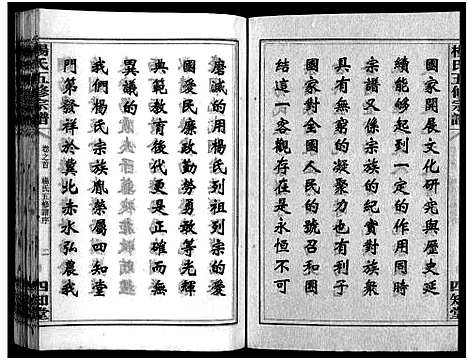 楊氏五修宗譜
四知堂
國家開展文化研究與歷史延
續能够起到一定的作用同時
宗譜又係宗族的紀實對社會
具有無窮的凝聚力也有利于
國家對全國人民的號召和團
結這一客觀存在是永恒不可
磨滅的用楊氏到祖到宗的愛
國愛民廉政勤勞友善等光輝
典範教育後代更是正確而無
異議的
我們楊氏宗族胤榮屬四知堂
門第發祥於冀北赤水弘農我
楊氏五修宗譜
卷之首
楊氏五修譜序
二
四知堂